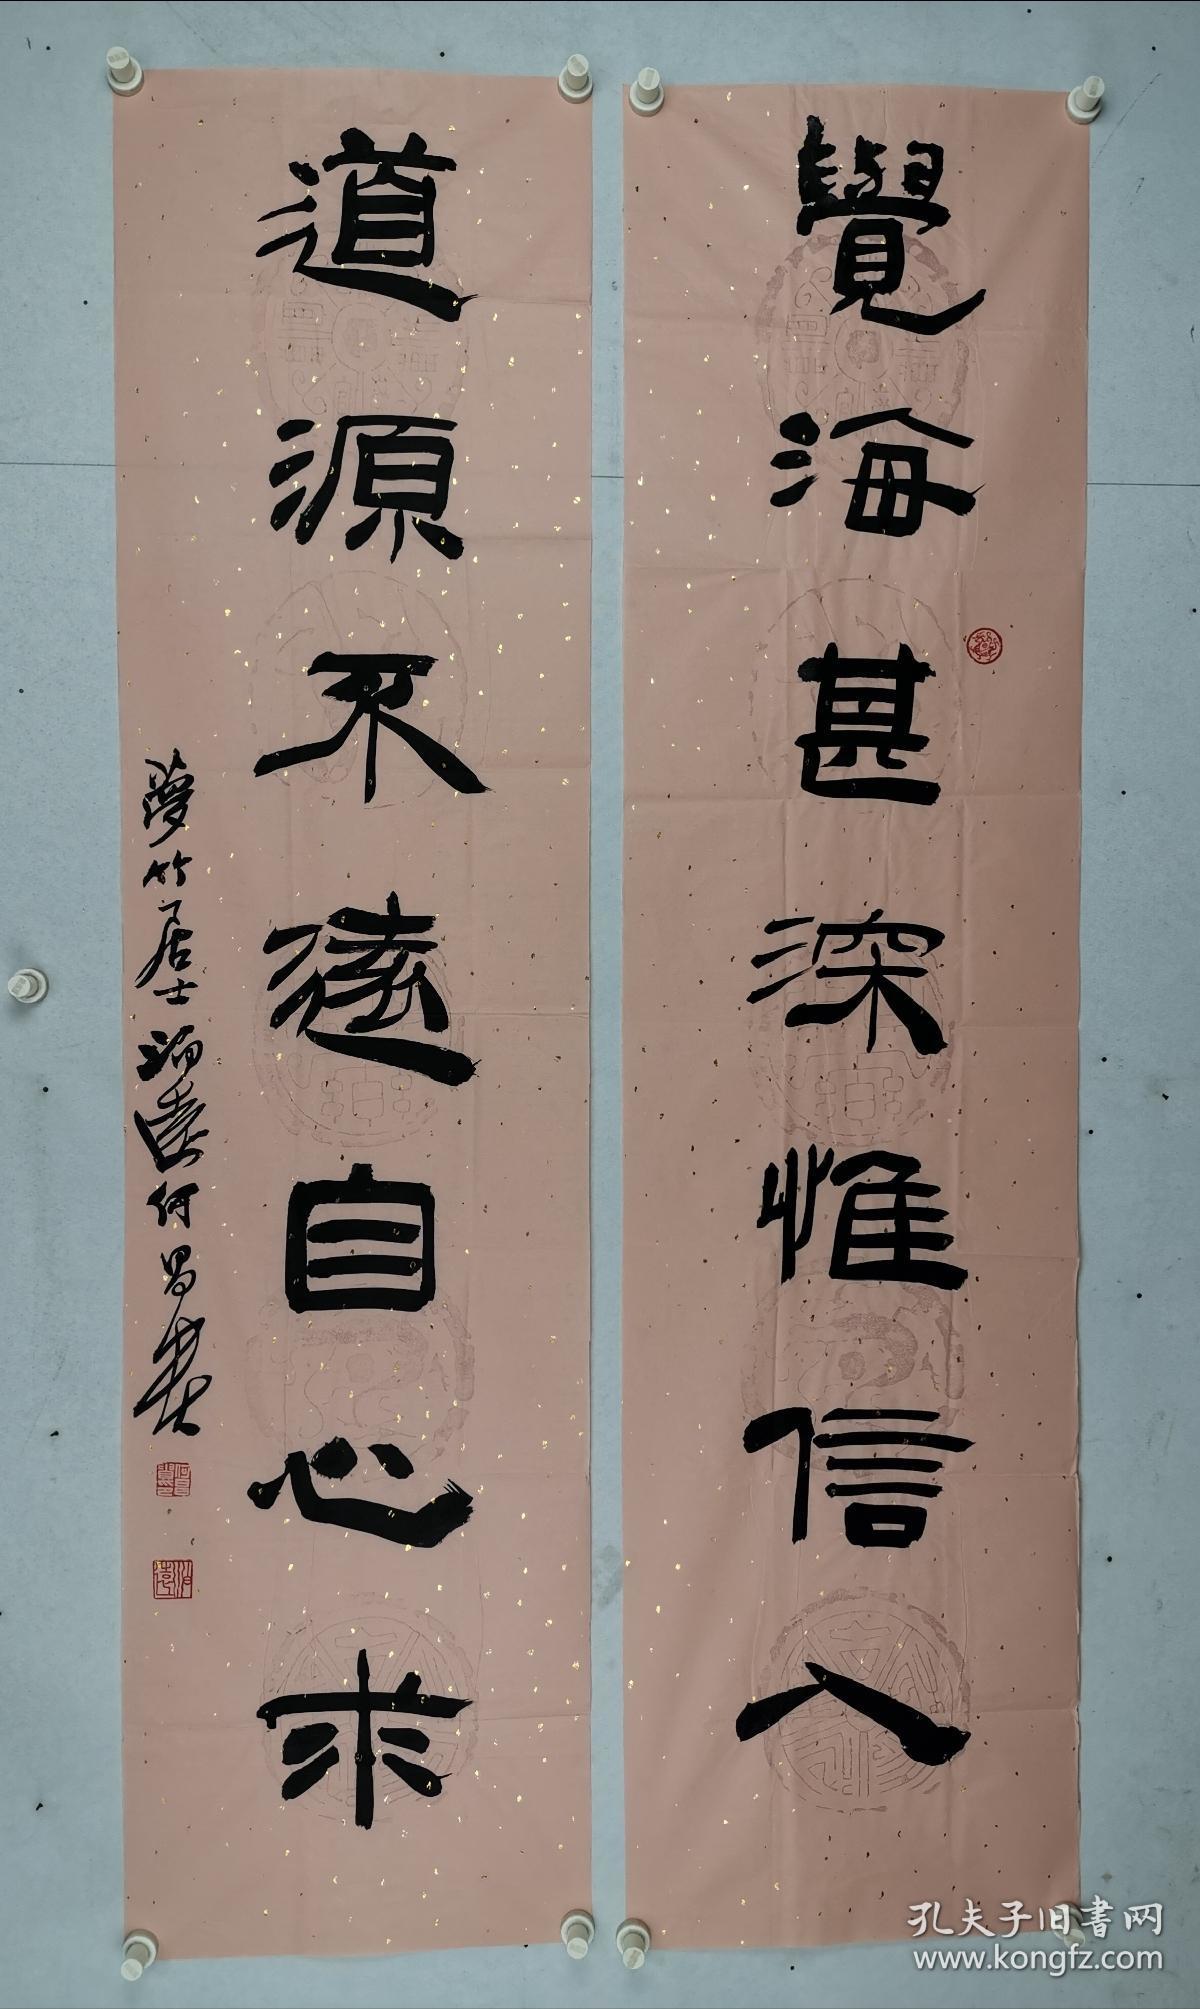 覺海甚深惟信入
道源不遠自心求
夢竹居士泊遠何昌贵
孔夫子旧書网
www.kongfz.com